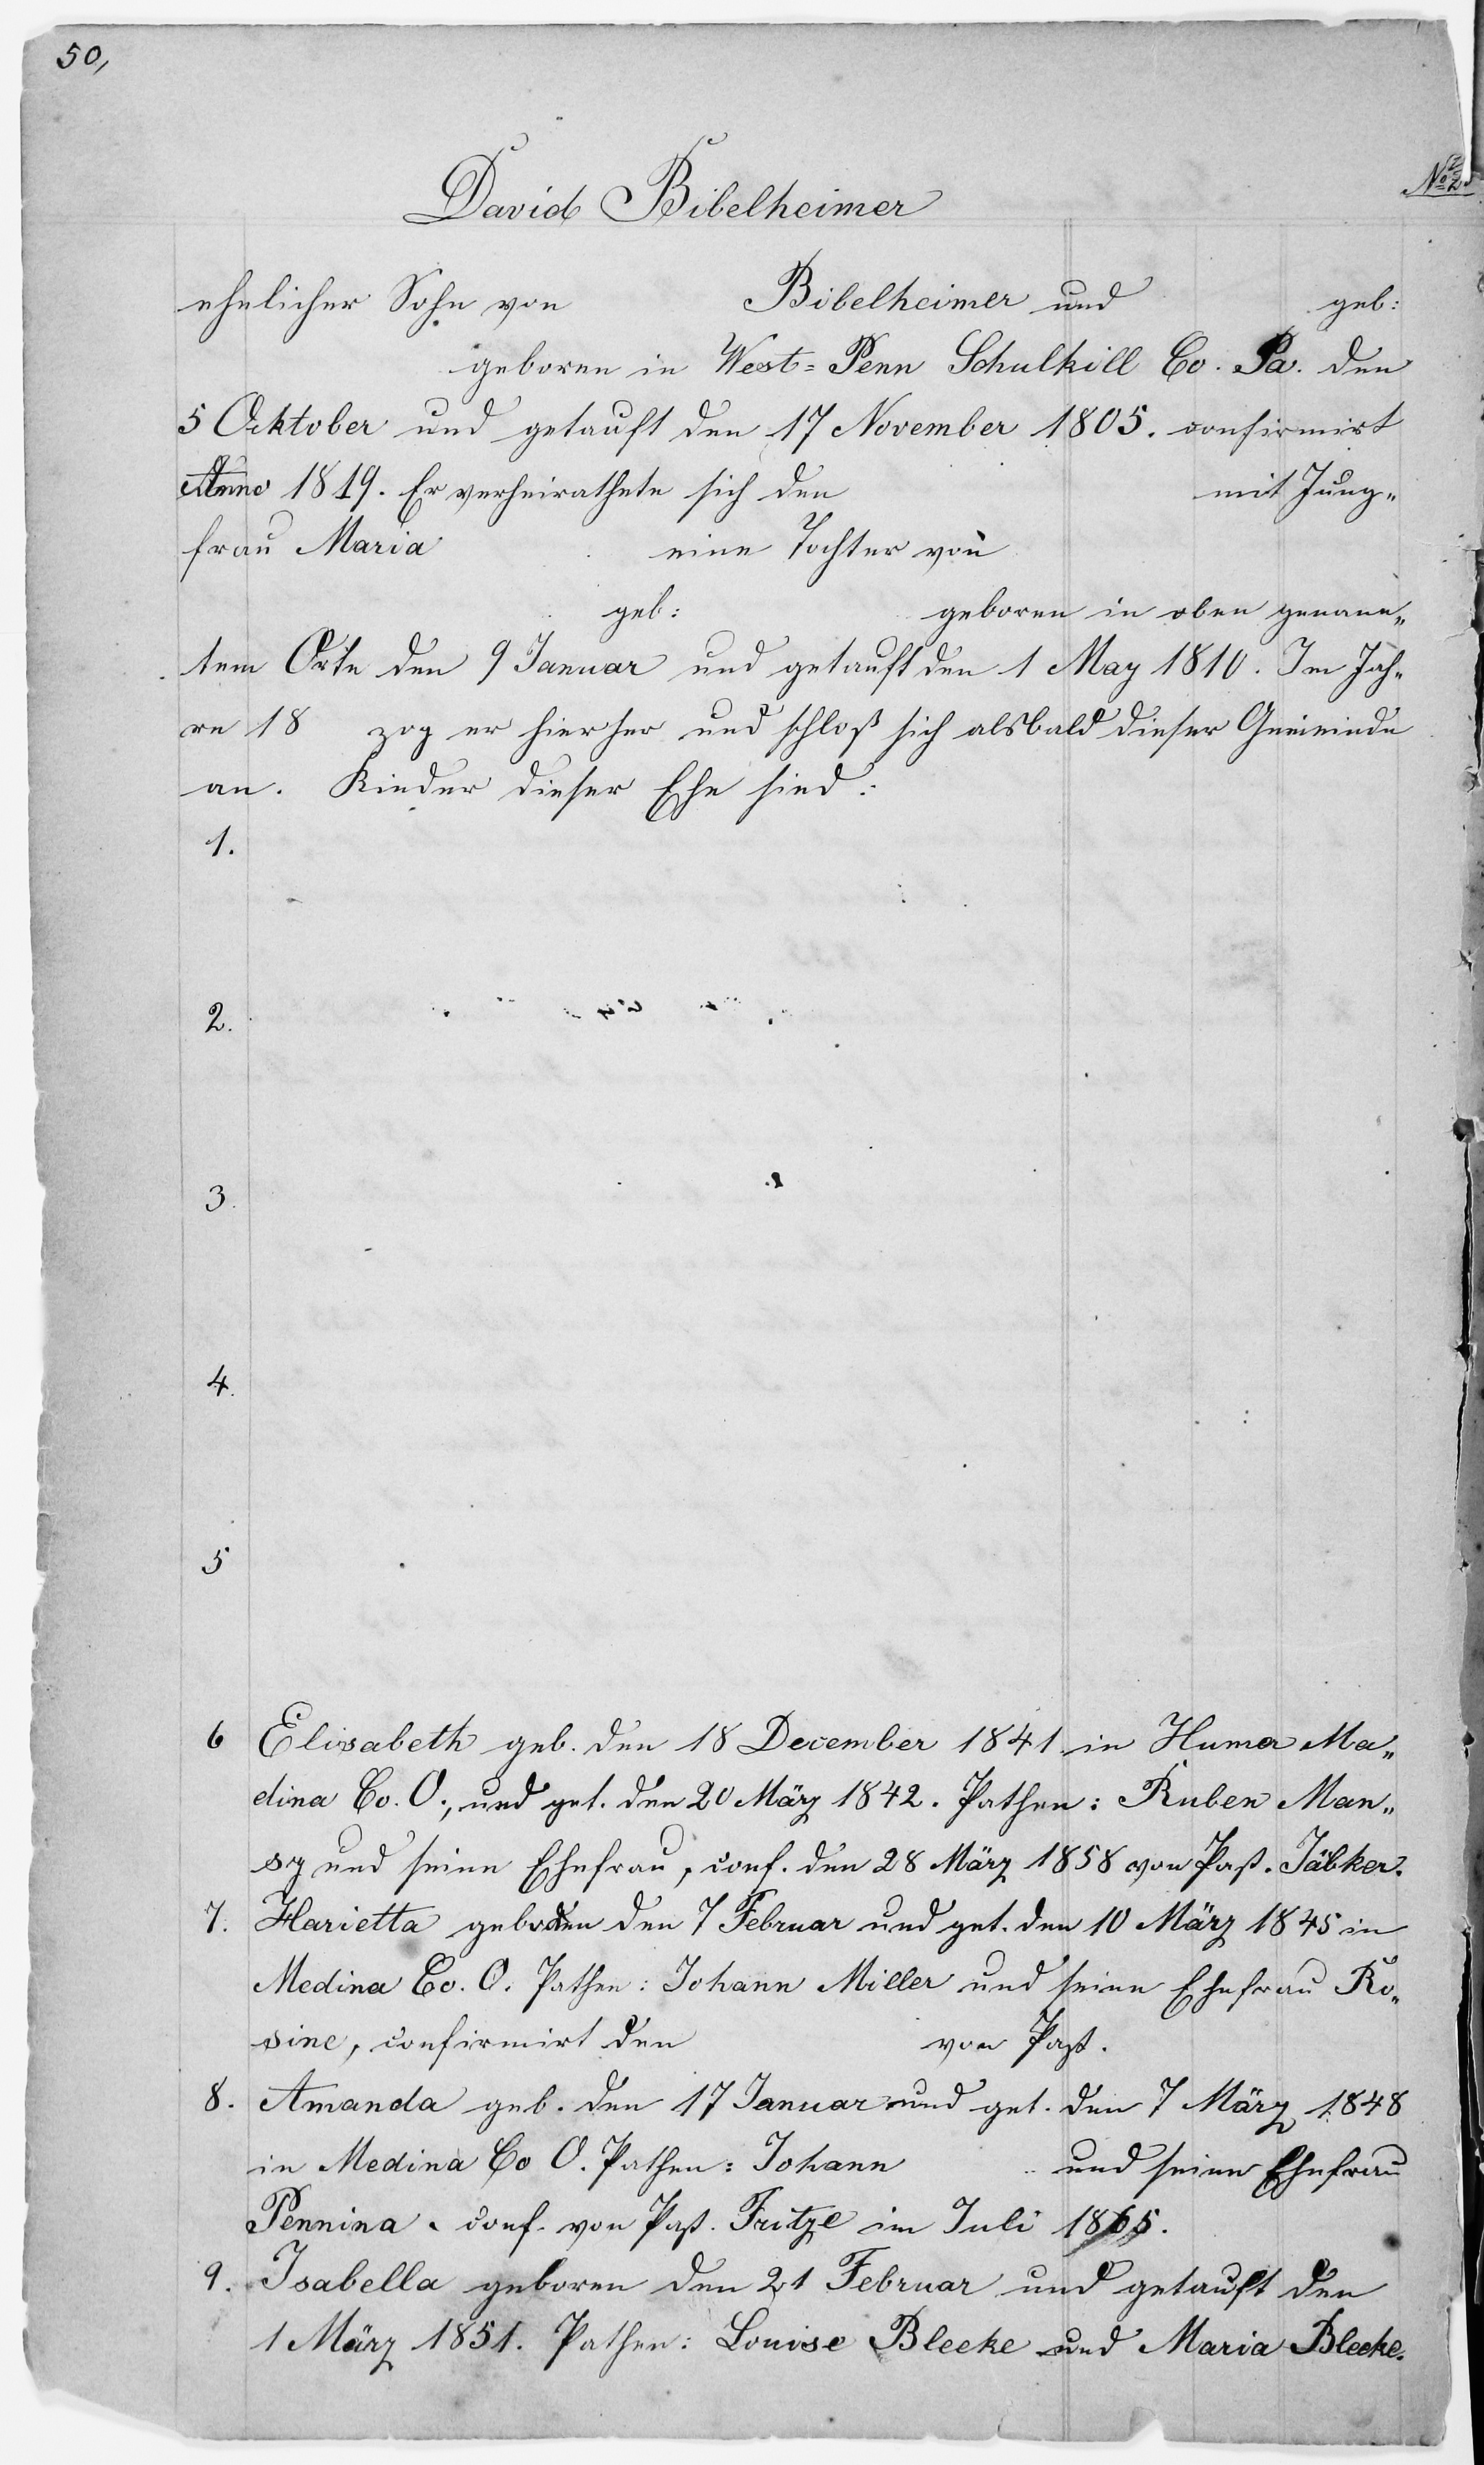 50,
No
David Bibelheimer
ehelicher Sohn von Bibelheimer und geb:
geboren in West=Penn Schulkill Co. Pa. den
5 Ocktober und getauft den 17 November 1805. confirmirt
Anno 1819. Er verheirathete sich den mit Jung„
frau Maria eine Tochter von
geb: geboren in oben genann„
tem Orte den 9 Januar und getauft den 1 May 1810. Im Jah„
re 18 zog er hierher und schloß sich alsbald dieser Gemeinde
an. Kinder dieser Ehe sind:
1.
2.
3.
4.
5
6 Elisabeth geb. den 18 December 1841 in Huma Ma„
dina Co. O., und get. den 20 März 1842. Pathen: Ruben Man„
sy und seine Ehefrau, conf. den 28 März 1858 von Past. Jäbker.
7. Harietta geboren den 7 Februar und get. den 10 März 1845 in
Medina Co. O. Pathen: Johann Miller und seine Ehefrau Ro„
sine, confirmirt den von Past.
8. Amanda geb. den 17 Januar und get. den 7 März 1848
in Medina Co O. Pathen: Johann und seine Ehefrau
Pennina. conf. von Past. Fritze im Juli 1865.
9. Isabella geboren den 21 Februar und getauft den
1 März 1851. Pathen: Louise Bleeke und Maria Bleeke.